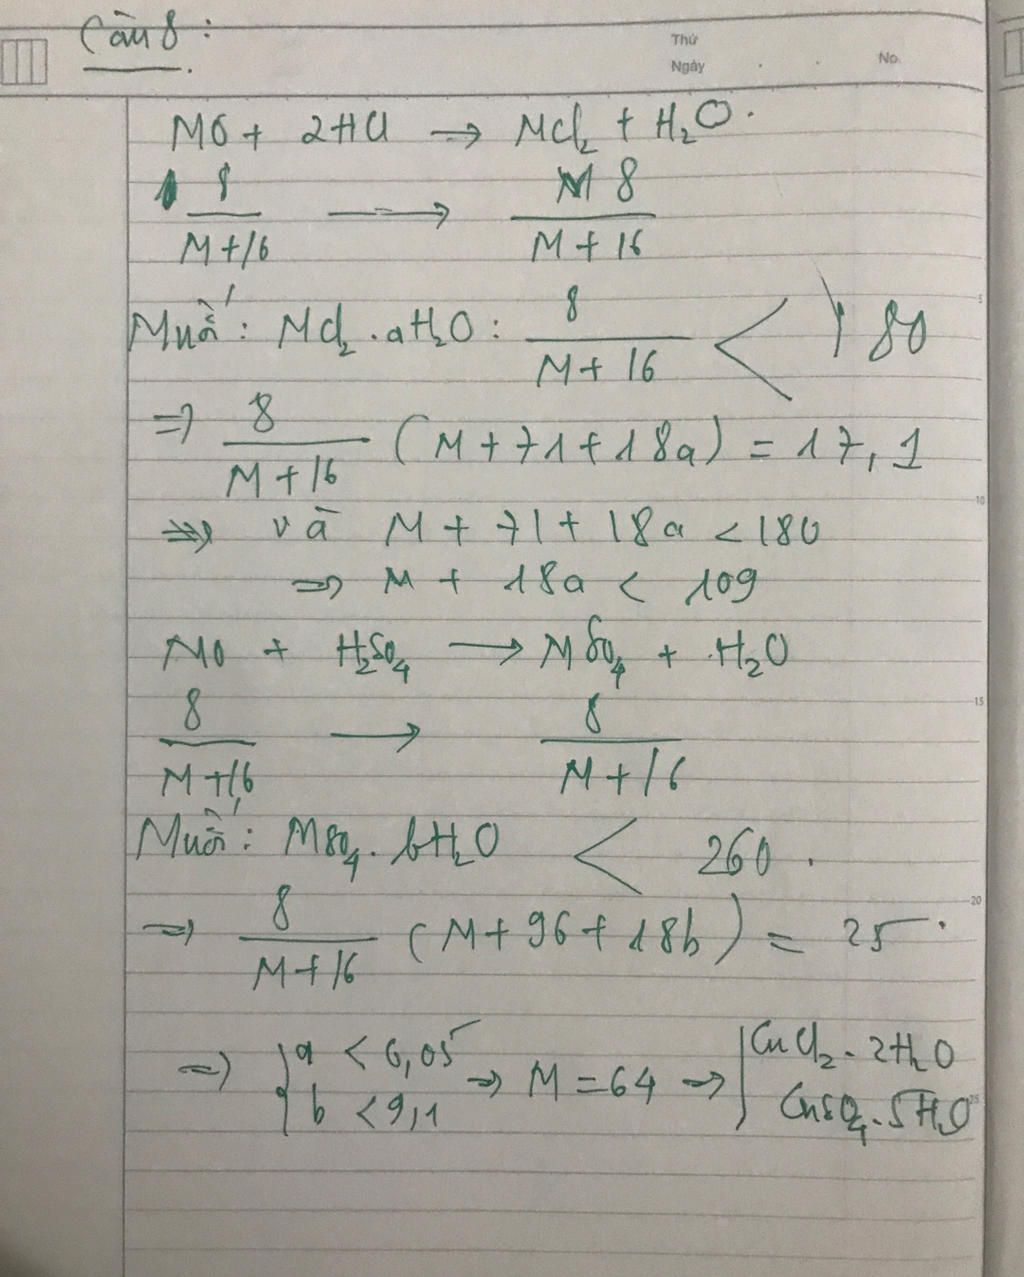 Câu 8:
Thứ
Ngày
No.
MO + 2HCl → MCl₂ + H₂O.
8/(M+16) → 8/(M+16)
Muối: MCl₂.aH₂O: 8/(M+16) < 180
5
⇒ 8/(M+16) (M+71+18a) = 17,1
10
⇒ và M + 71 + 18a < 180
⇒ M + 18a < 109
MO + H₂SO₄ → MSO₄ + H₂O
15
8/(M+16) → 8/(M+16)
Muối: MSO₄.bH₂O < 260.
20
⇒ 8/(M+16) (M+96+18b) = 25.
⇒ { a < 6,05
b < 9,1
⇒ M = 64 ⇒ | CuCl₂.2H₂O
CuSO₄.5H₂O
25